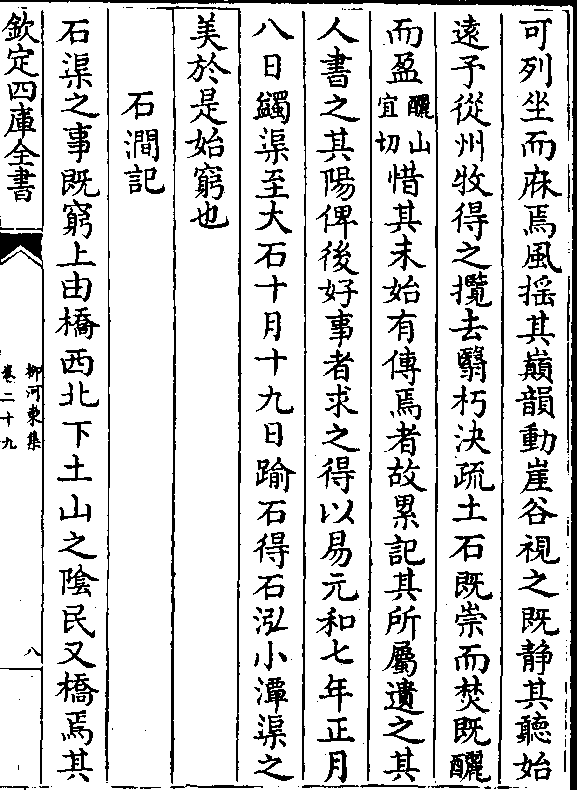 可列坐而庥焉風搖其巔韻動崖谷視之既静其聽始
遠予從州牧得之攬去翳朽決疏土石既崇而焚既釃
而盈釃山宜切惜其未始有傳焉者故累記其所屬遺之其
人書之其陽俾後好事者求之得以易元和七年正月
八日蠲渠至大石十月十九日踰石得石泓小潭渠之
美於是始窮也
石澗記
石渠之事既窮上由橋西北下土山之陰民又橋焉其
欽定四庫全書
柳河東集
卷二十九
八